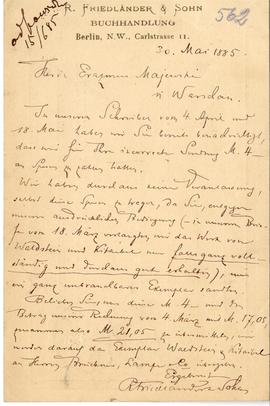 562
R. FRIEDLÄNDER & SOHN
BUCHHANDLUNG
Berlin, N.W., Carlstrasse 11.
15/6 85
30. Mai 1885.
Herrn Erazmus Majewski
in Warschau.
In unseren Schreiben vom 4 April und
18 Mai haben wir Sie bereits benachrichtigt,
dass wir für Ihre incorrecte Sendung M. 4.-
an Spesen zu zahlen hatten.
Wir haben durchaus keine Veranlassung,
selbst diese Spesen zu tragen, da Sie, entgegen
unserer ausdrücklichen Bedingung (- in unserem Brie-
fe vom 18. März verlangten wir das Werk von
Waldstein und Kitaibel nur falls ganz voll-
ständig und durchaus gut erhalten), uns
ein ganz unbrauchbares Exemplar sandten.
Belieben Sie, uns diese M 4.- und den
Betrag unserer Rechnung vom 4. März mit M. 17,05,
zusammen also M. 21,05 zu übermitteln, wir
werden darauf das Exemplar Waldstein & Kitaibel
an Herren Brückner, Lampe & Co übergeben.
Ergebenst
R Friedländer & Sohn